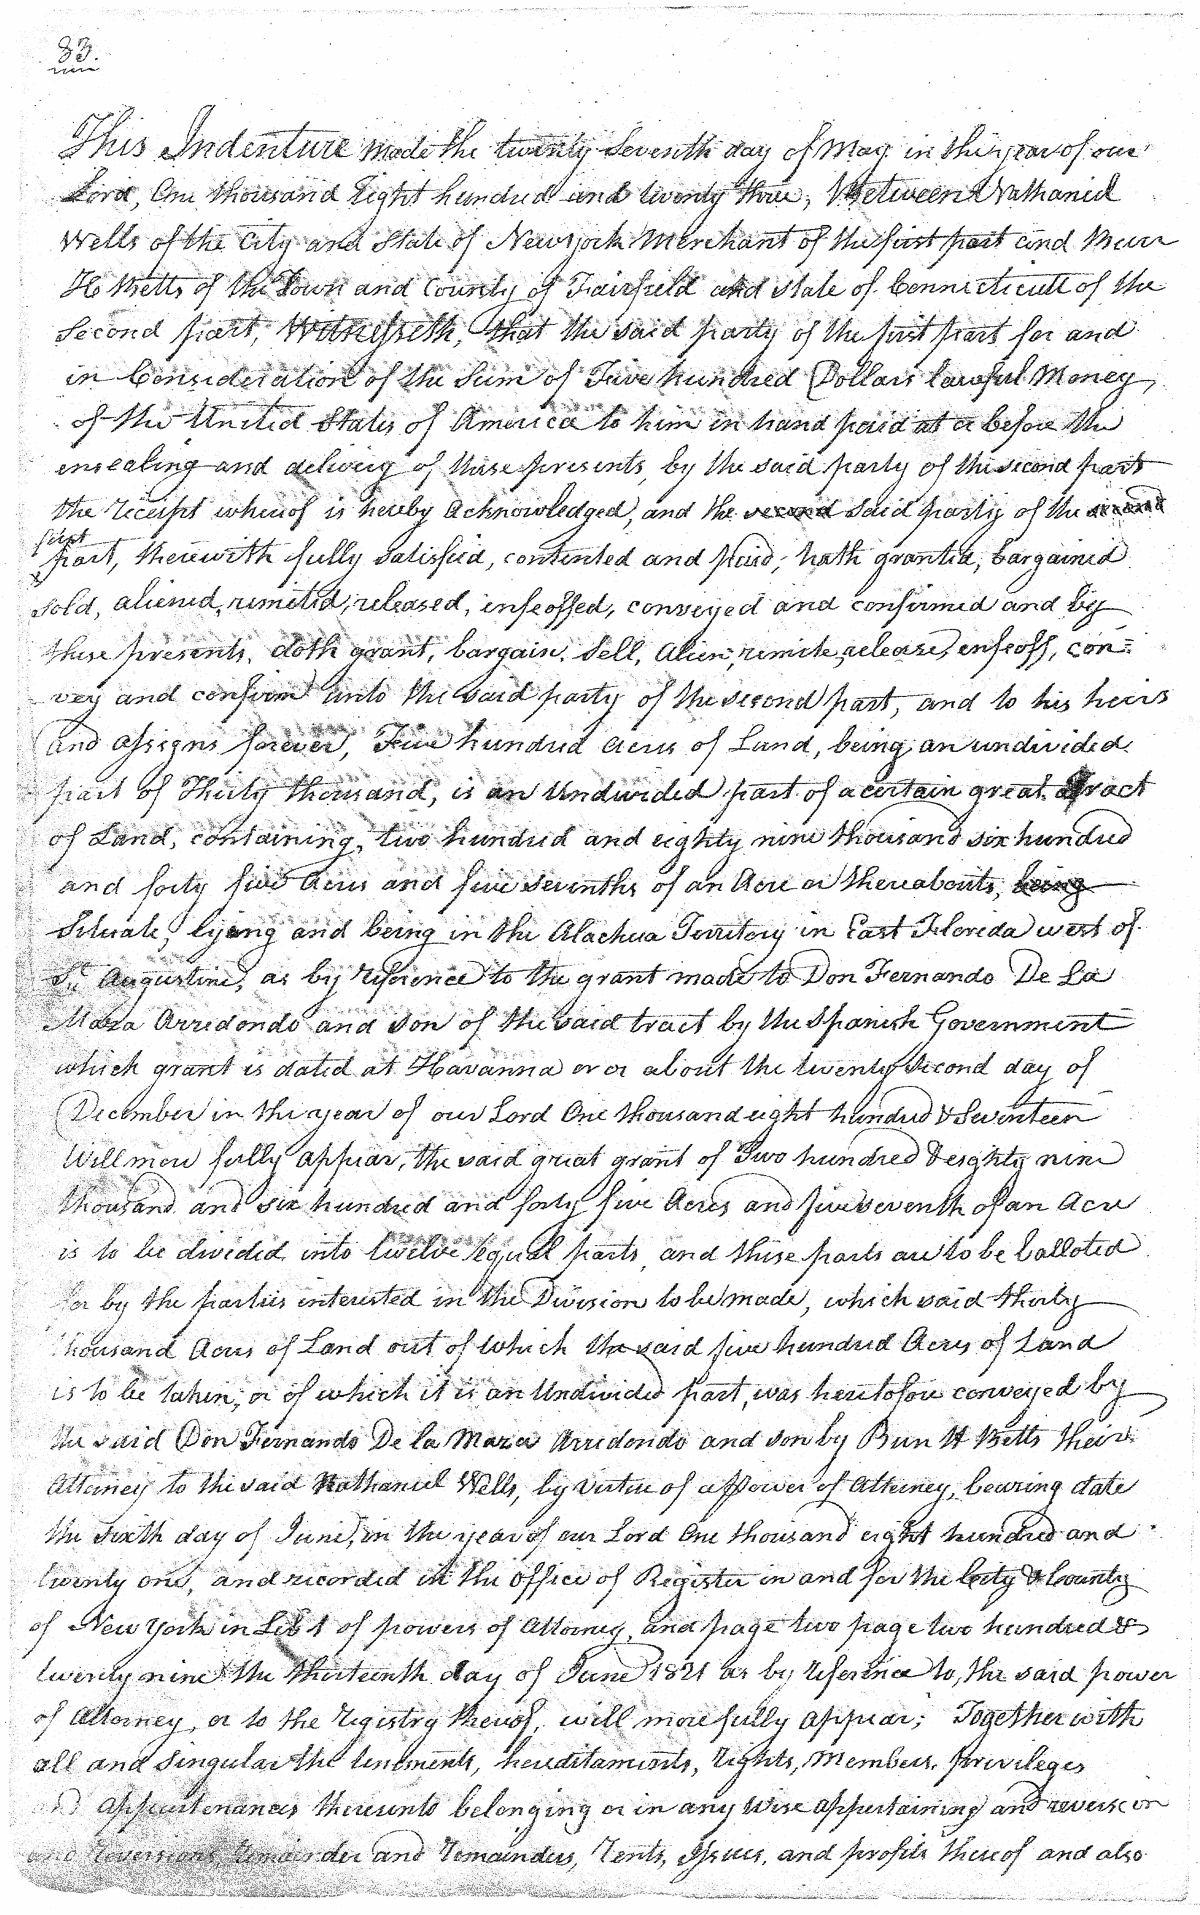 83.
This Indenture made the twenty Seventh day of May in the year of our
Lord, One thousand Eight hundred and twenty three, Between Nathaniel
Wells of the City and State of New York Merchant of the first part and Burr
H Betts of the Town and County of Fairfield and state of Connecticutt of the
Second part, Witnesseth, that the said party of the first part for and
in Consideration of the Sum of Five hundred Dollars lawful Money
of the United States of America to him in hand paid at or before the
ensealing and delivery of these presents, by the said party of the second part
the receipt whereof is hereby Acknowledged, and the second said party of the second
first
part, therewith fully satisfied, contented and paid, hath granted, bargained
sold, aliened, remitted, released, enfeoffed, conveyed and confirmed and by
these presents, doth grant, bargain, Sell, Alien, remite, release, enfeoff, con=
vey and confirm unto the said party of the second part, and to his heirs
and assigns forever, Five hundred acres of Land, being an undivided
part of Thirty thousand, is an Undivided part of a certain great Tract
of Land, containing, two hundred and eighty nine thousand six hundred
and forty five Acres and five sevenths of an Acre or thereabouts, being
Situate, lyeing and being in the Alachua Territory in East Floreda west of
St. Augustine, as by reference to the grant made to Don Fernando De La
Maza Arredondo and son of the said tract by the Spanish Government
which grant is dated at Havanna on or about the twenty second day of
December in the year of our Lord One thousand eight hundred & Seventeen
Will more fully appear, the said great grant of Two hundred & eighty nine
thousand and six hundred and forty five Acres and five seventh of an Acre
is to be divided into twelve equal parts, and these parts are to be balloted
for by the parties interested in the Division to be made, which said thirty
thousand Acres of Land out of which the said five hundred Acres of Land
is to be taken, or of which it is an Undivided part, was heretofore conveyed by
the said Don Fernando De la Maza Arredondo and son by Burr H Betts their
Attorney to the said Nathaniel Wells, by virtue of a Power of Attorney, bearing date
the sixth day of June, in the year of our Lord One thousand eight hundred and
twenty one, and recorded in the office of Register in and for the City & County
of New York in Lib 1 of powers of Attorney, and page two page two hundred &
twenty nine the thirteenth day of June 1821 as by reference to, the said power
of Attorney, or to the registry thereof, will more fully appear; Together with
all and Singular the tenements, hereditaments, rights, Members, privileges
and appurtenances thereunto belonging or in any wise appertaining and reversion
and reversions, remainder and remainders, rents, Issues, and profits thereof and also